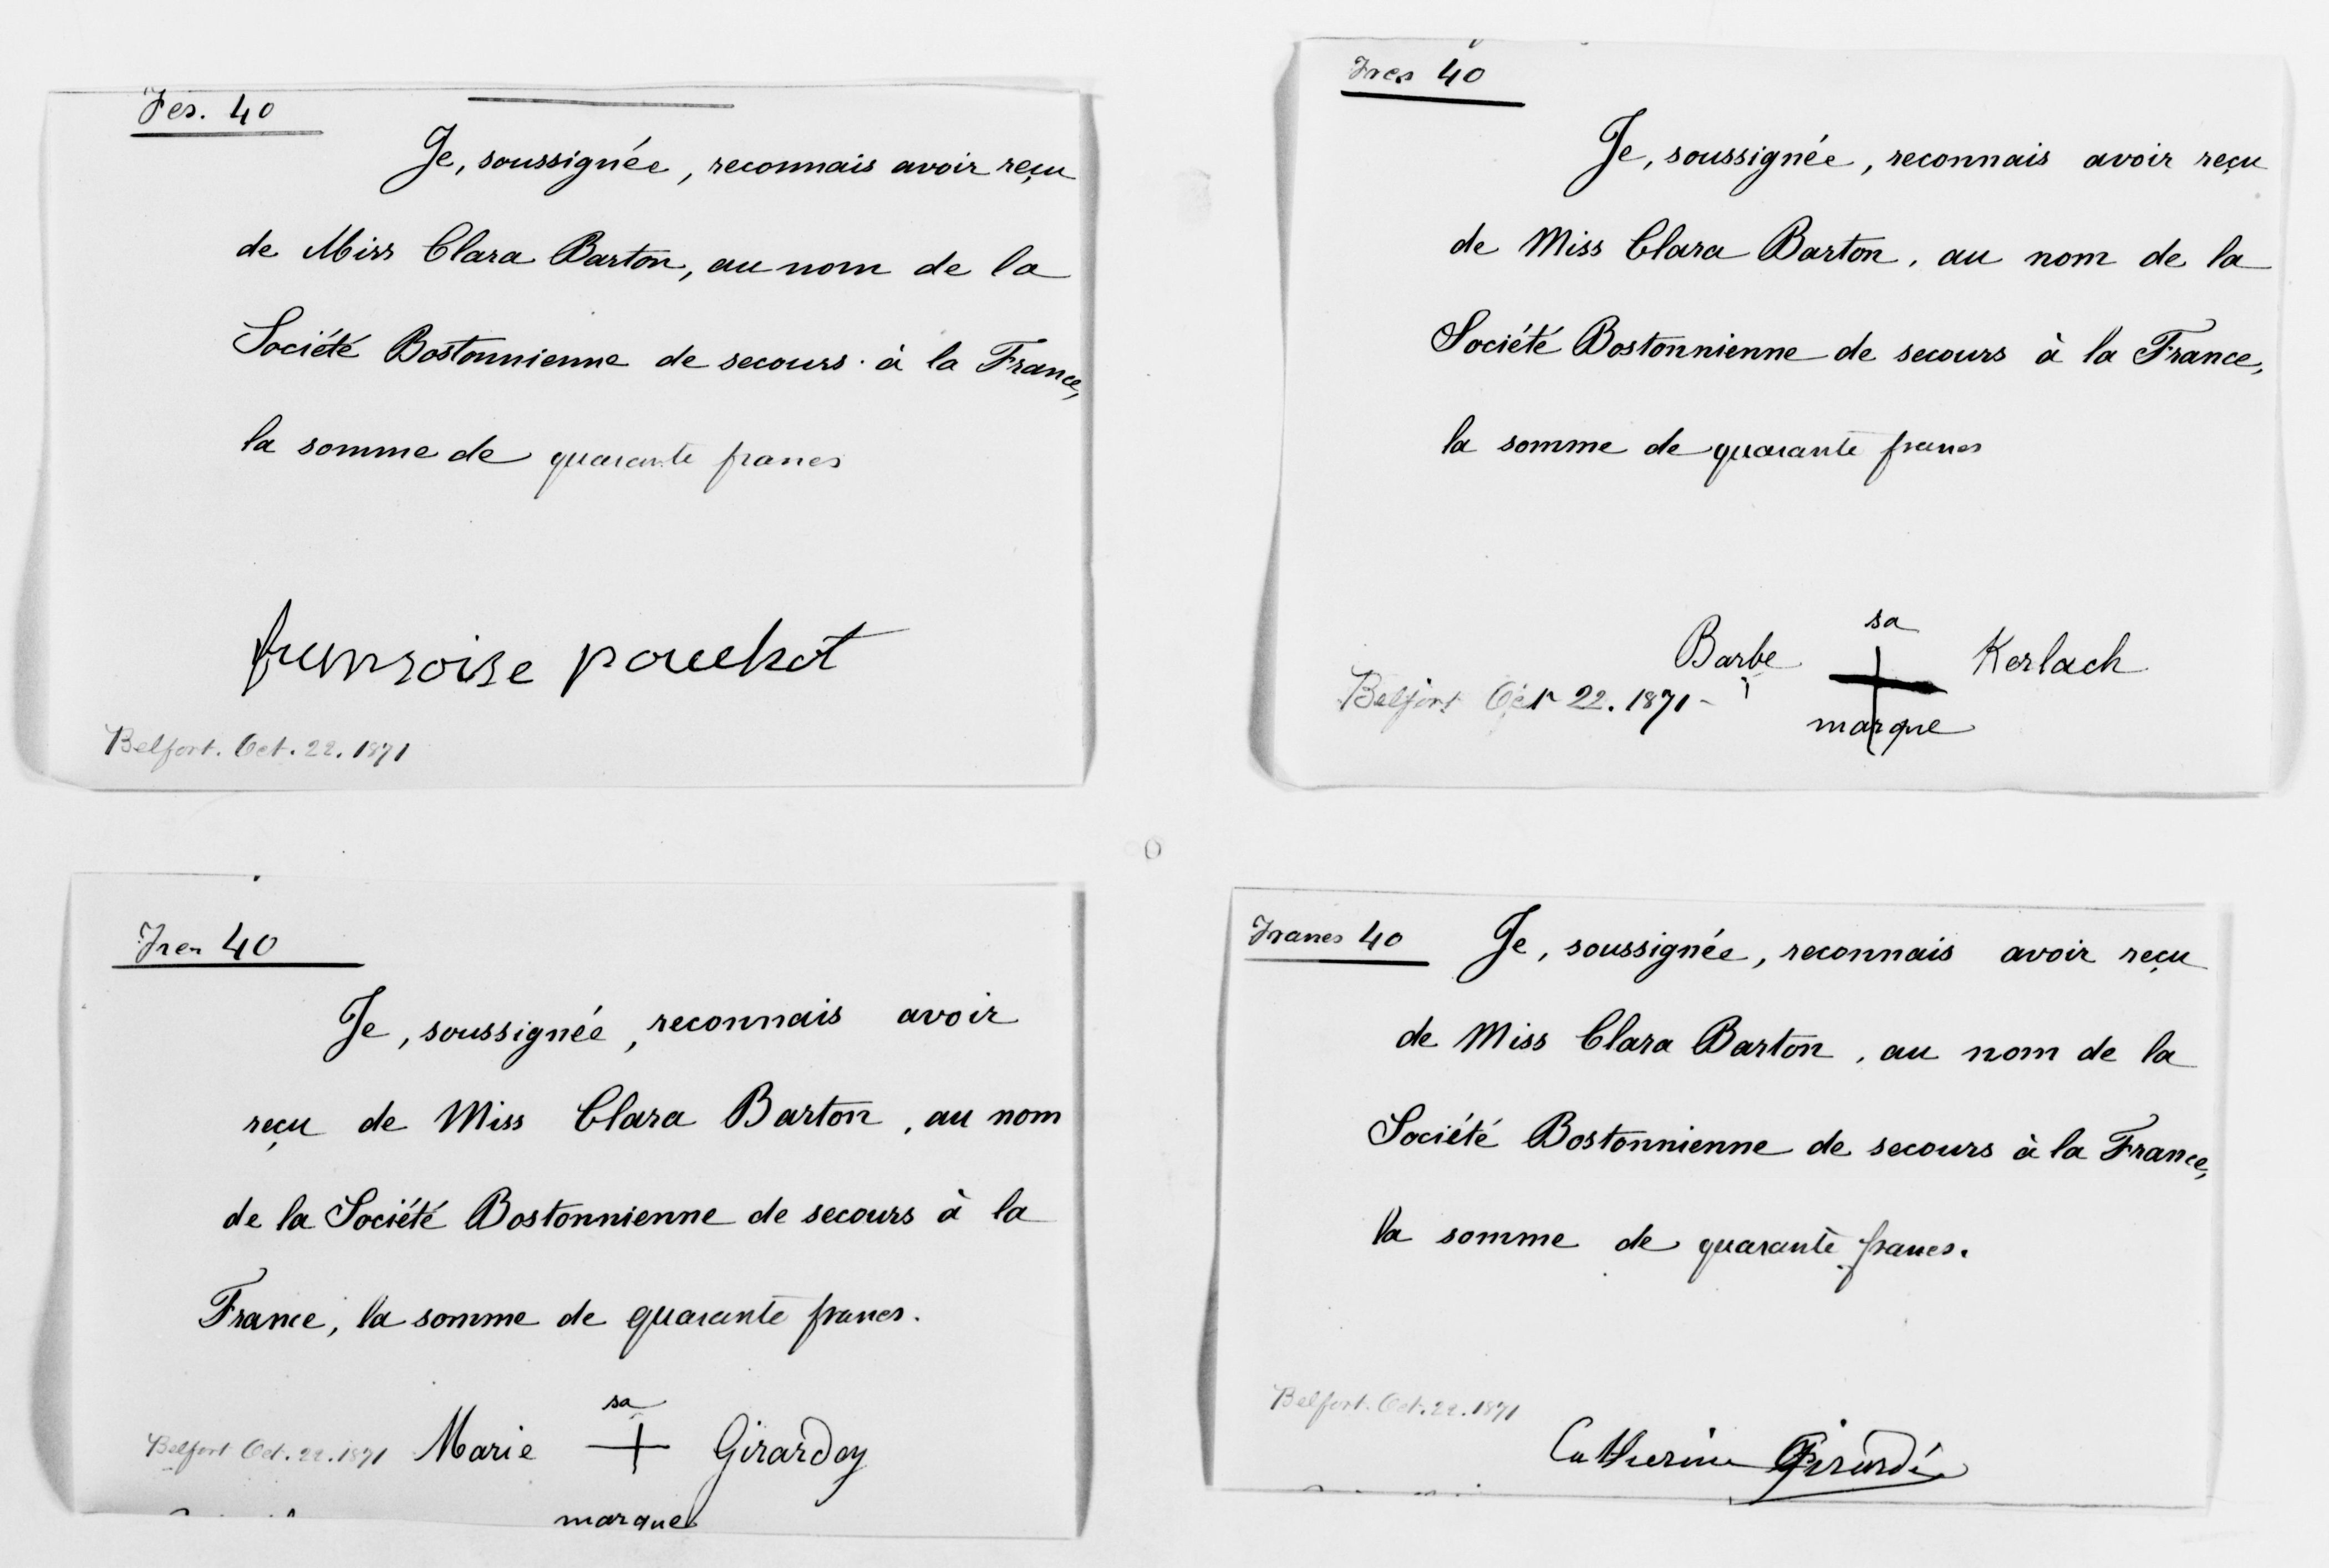 Fcs. 40
Je, soussignée, reconnais avoir reçu
de Miss Clara Barton, au nom de la
Société Bostonnienne de secours à la France,
la somme de quarante francs
franzoise pouchot
Belfort. Oct. 22. 1871
Frcs 40
Je, soussignée, reconnais avoir reçu
de Miss Clara Barton, au nom de la
Société Bostonnienne de secours à la France,
la somme de quarante francs
sa
Barbe + Kerlach
Belfort Oct 22. 1871 -
marque
Frcs 40
Je, soussignée, reconnais avoir
reçu de Miss Clara Barton, au nom
de la Société Bostonnienne de secours à la
France, la somme de quarante francs.
sa
Belfort Oct. 22. 1871 Marie + Girardoy
marque
Francs 40 Je, soussignée, reconnais avoir reçu
de Miss Clara Barton, au nom de la
Société Bostonnienne de secours à la France,
la somme de quarante francs.
Belfort. Oct. 22. 1871
Catherine Girardé